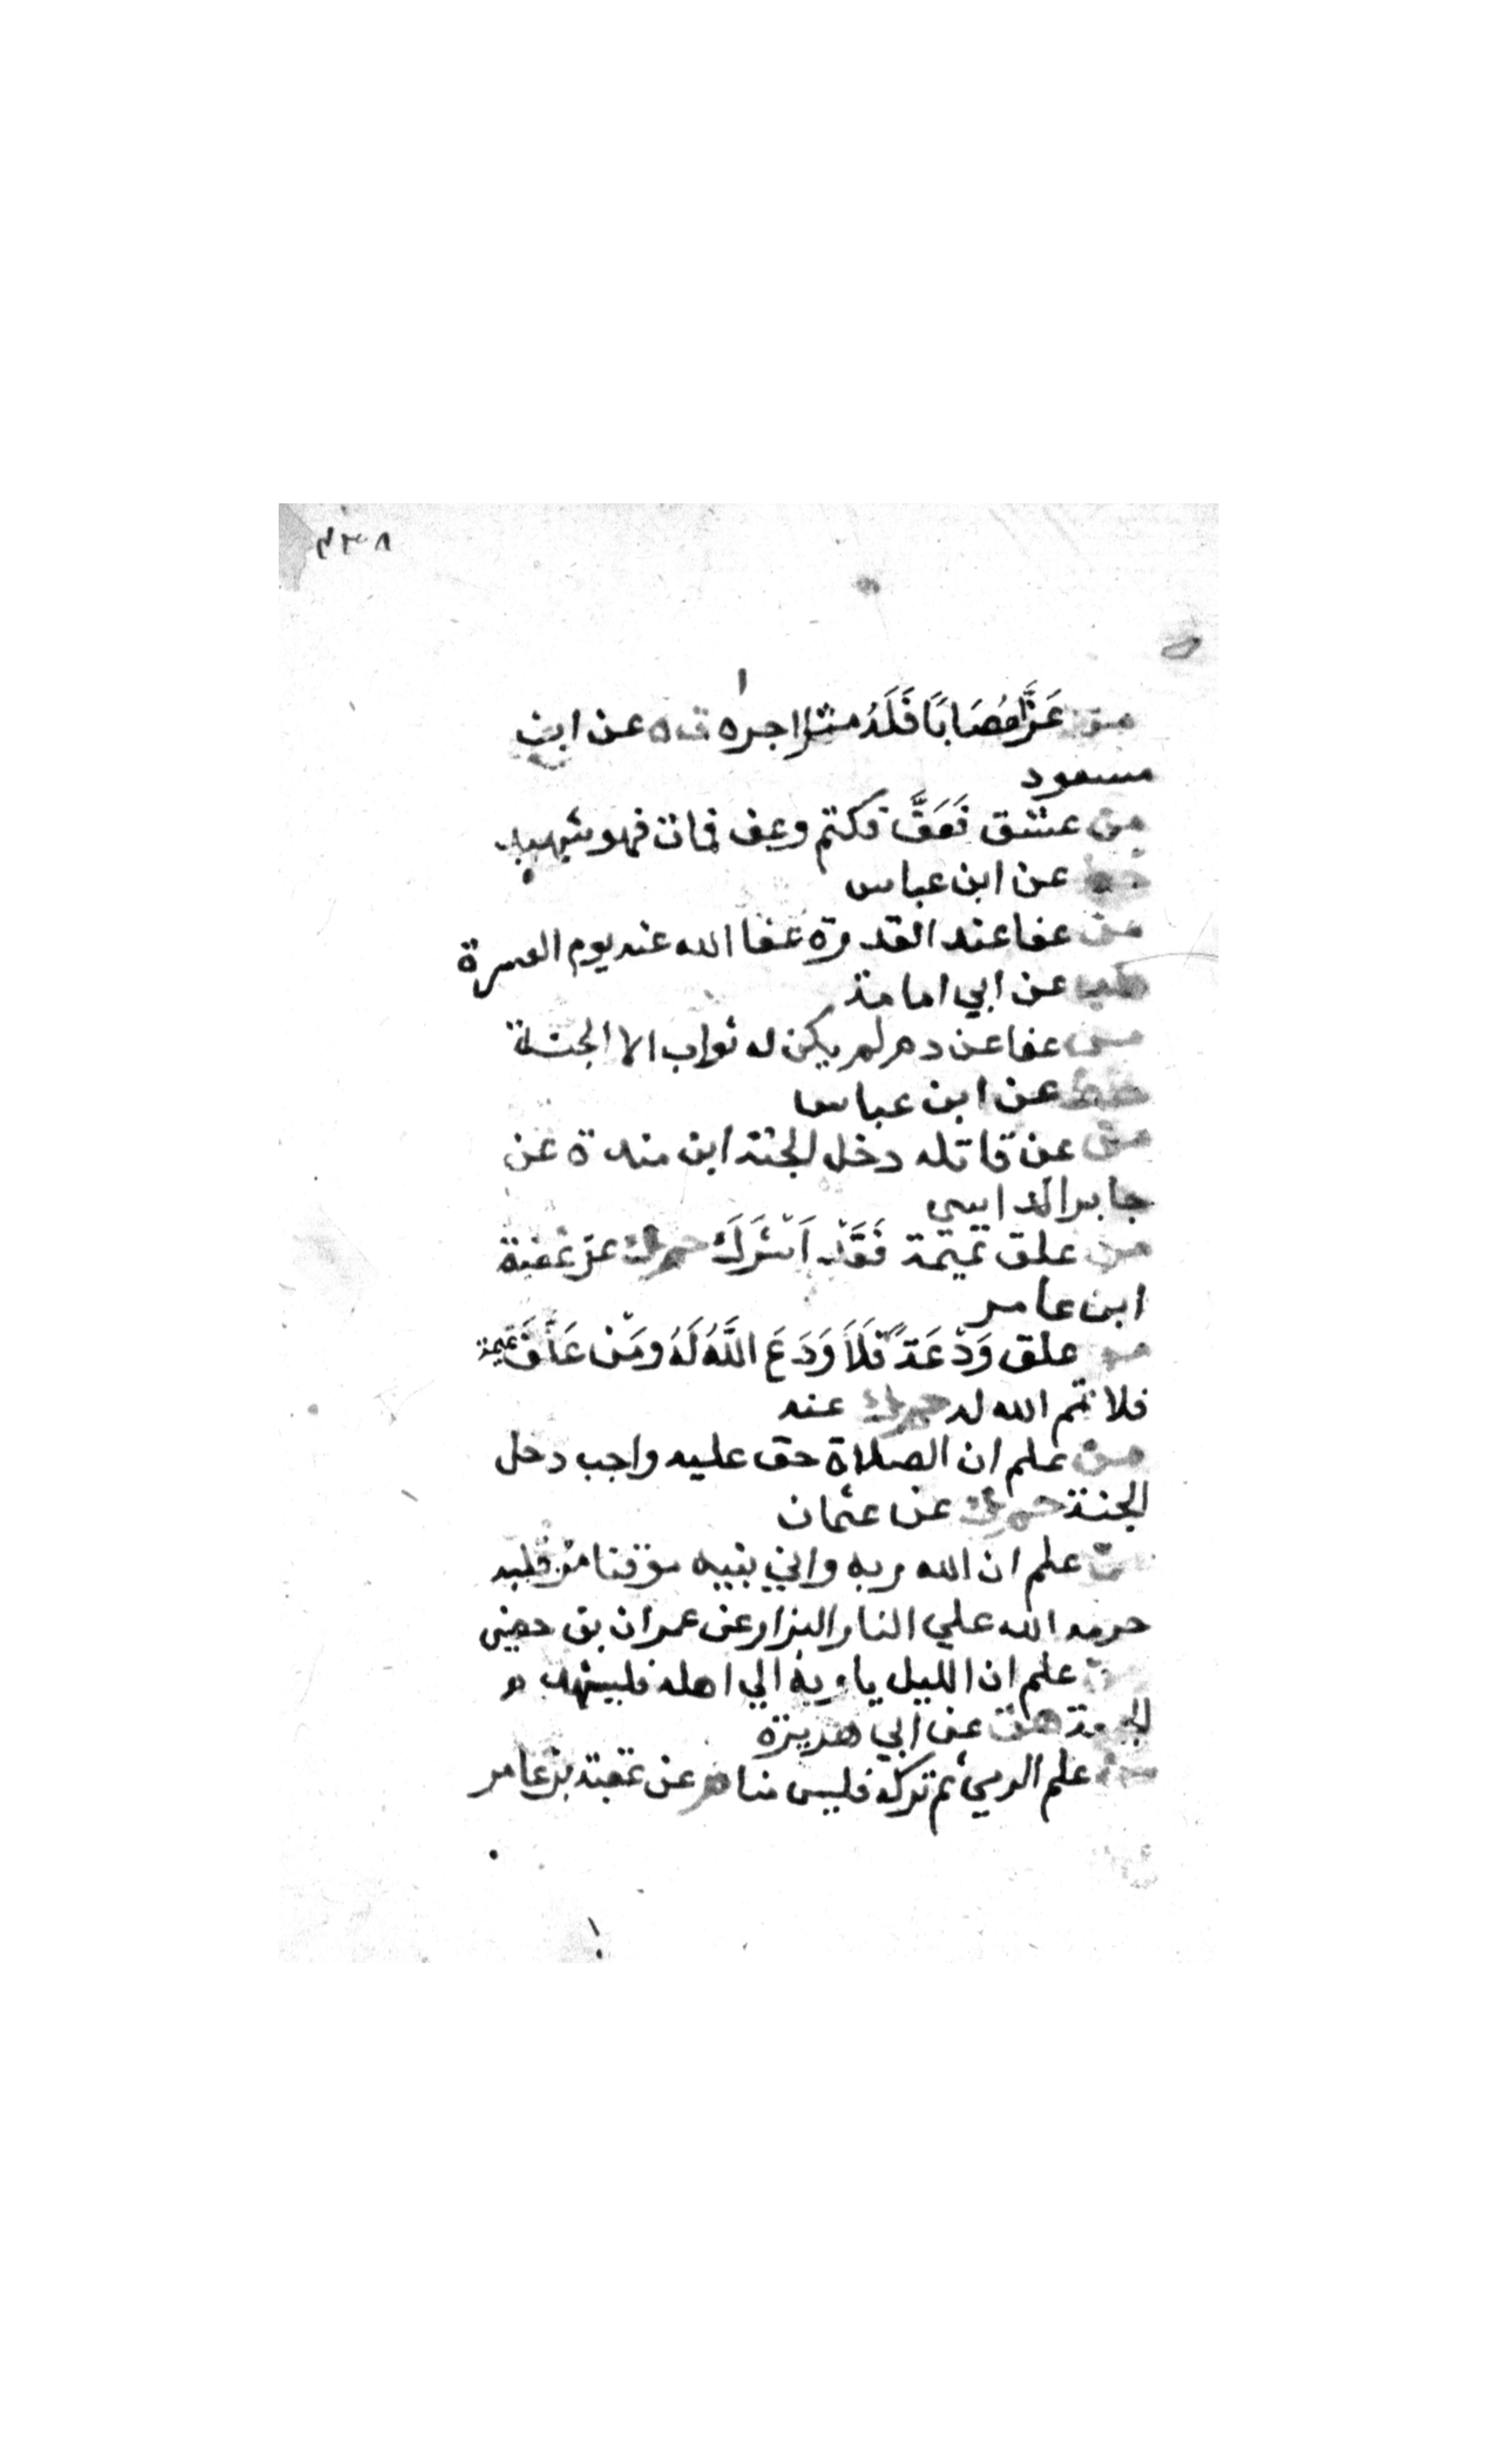 من عَزَّى مُصَابًا فَلَهُ مثل اجره ت ه عن ابن
مسعود
من عشق فَعَفَّ فكتم وعف فمات فهو شهيد
خط عن ابن عباس
من عفا عند القدرة عفا الله عنه يوم العسرة
طب عن ابي امامة
من عفا عن دم لم يكن له ثواب الا الجنة
خط عن ابن عباس
من عن قاتله دخل الجنة ابن مندة عن
جابر الراسبي
من علق تميمة فَقَدْ اَشْرَكَ حم ك عن عقبة
ابن عامر
من علق وَدْعَةً فَلَا وَدَعَ اللَّهُ لَهُ ومَنْ عَلَّقَ تميمة
فلا تمم الله له حم ك عنه
من علم ان الصلاة حق عليه واجب دخل
الجنة حم ك عن عثمان
من علم ان الله ربه واني نبيه موقنا من قلبه
حرمه الله علي النار البزار عن عمران بن حصين
من علم ان الليل ياويه الي اهله فليشهد
الجمعة هق عن ابي هريرة
من علم الرمي ثم تركه فليس منا م عن عقبة بن عامر